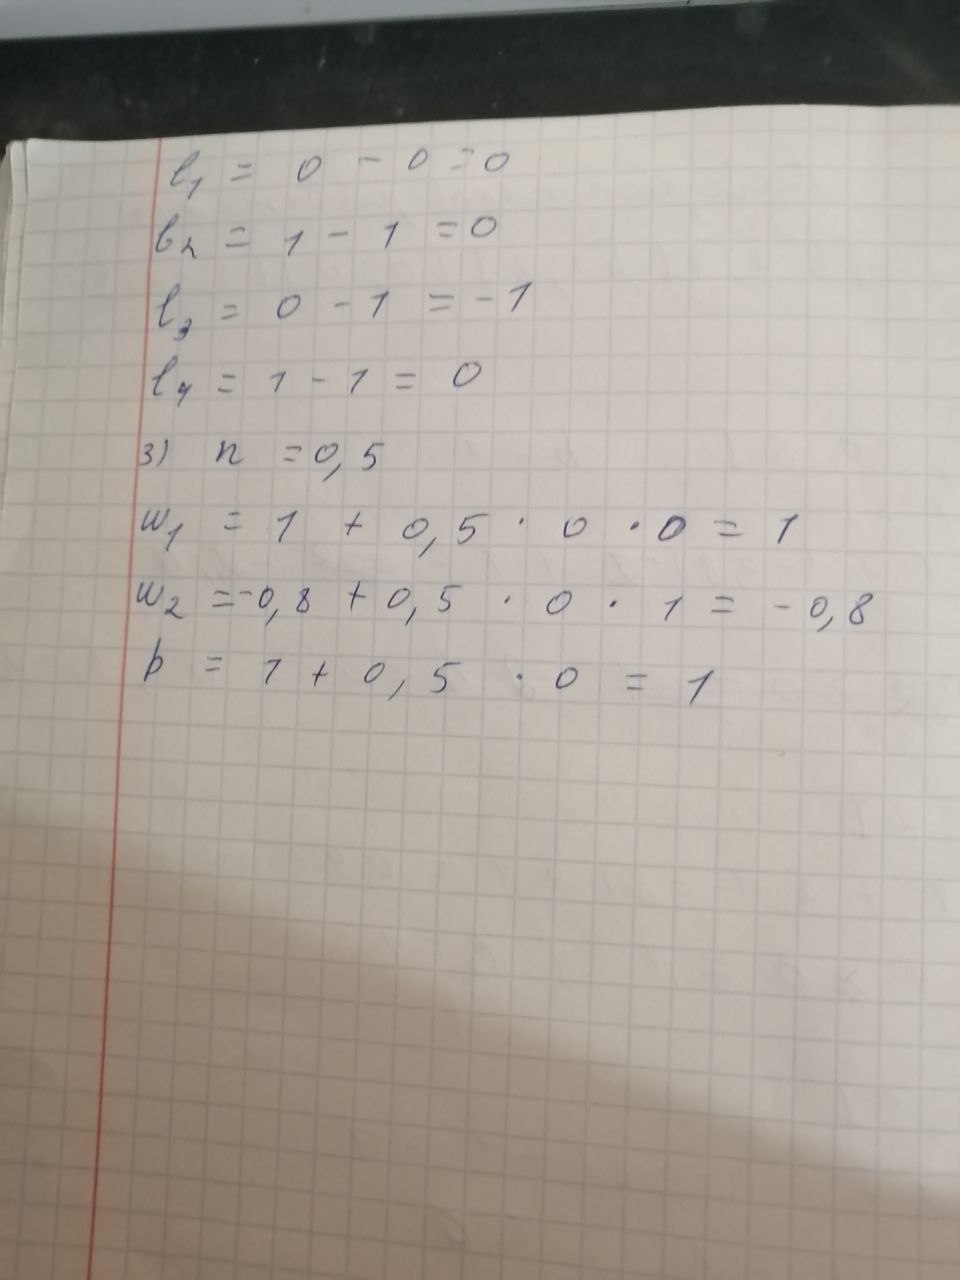 l₁ = 0 - 0 = 0
l₂ = 1 - 1 = 0
l₃ = 0 - 1 = -1
l₄ = 1 - 1 = 0
3) n = 0,5
w₁ = 1 + 0,5 · 0 · 0 = 1
w₂ = -0,8 + 0,5 · 0 · 1 = -0,8
b = 1 + 0,5 · 0 = 1